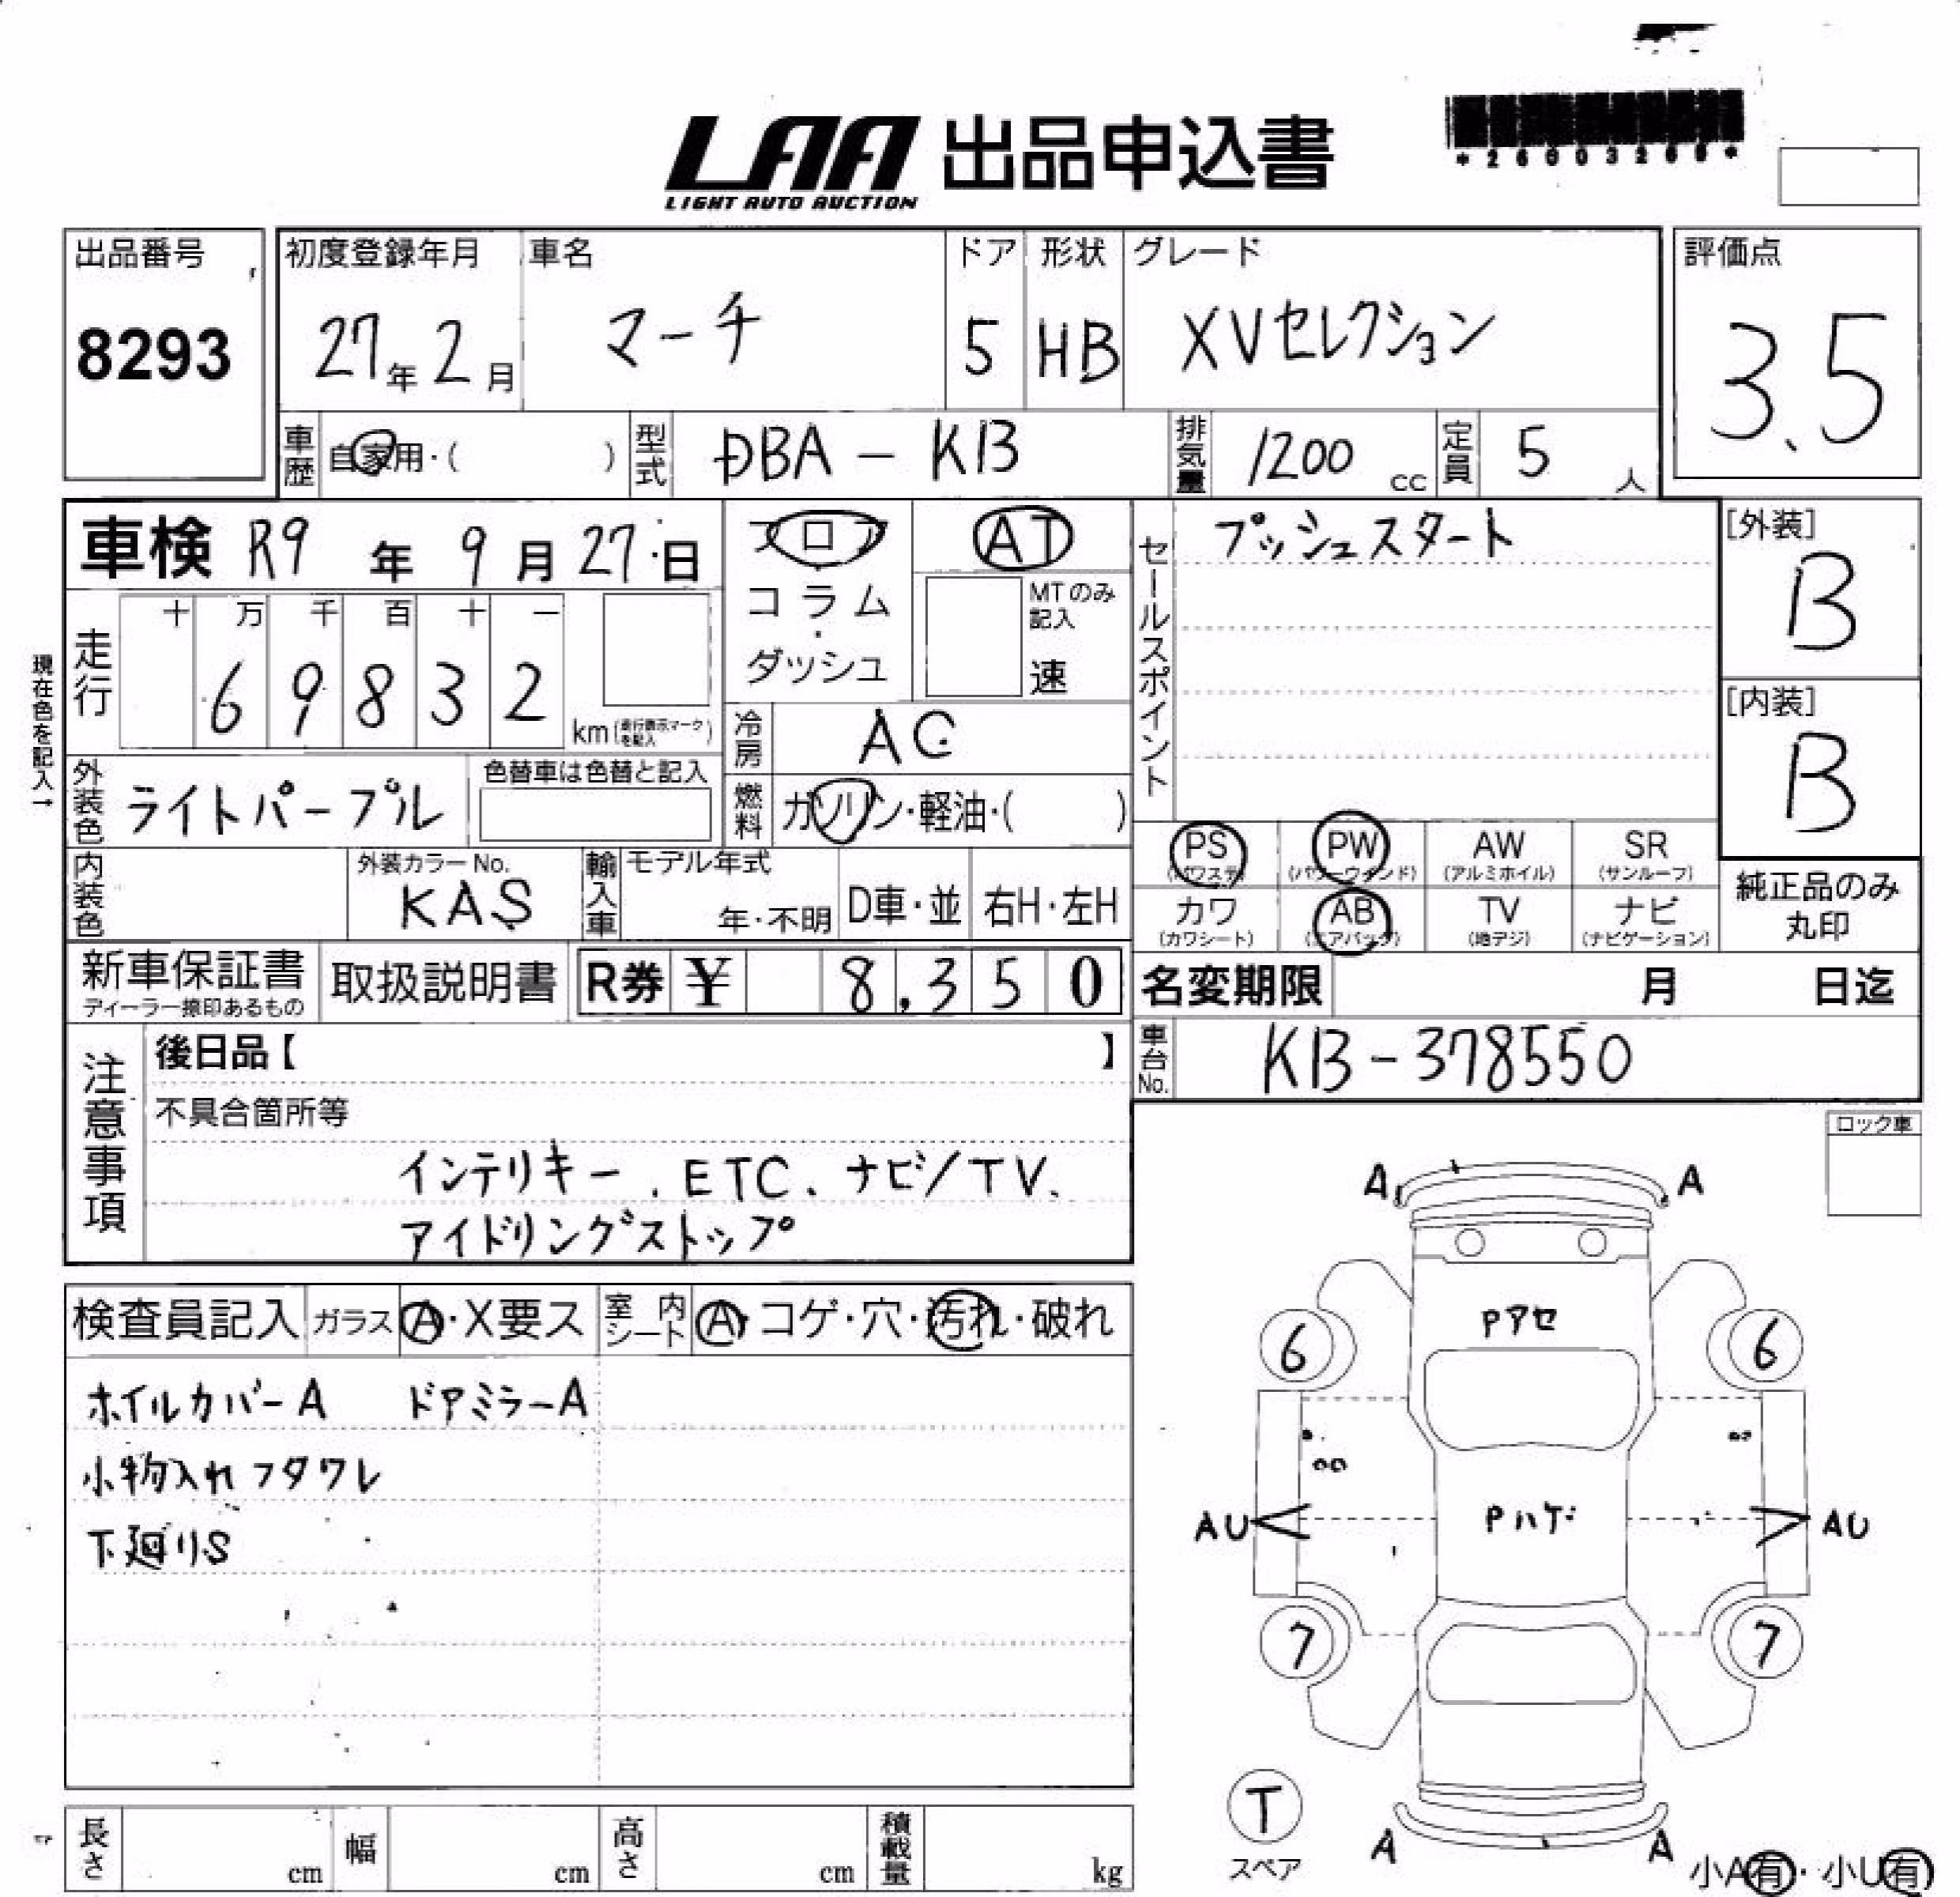 LAA 出品申込書
LIGHT AUTO AUCTION
出品番号
8293
初度登録年月
27年2月
車名
マーチ
ドア
5
形状
HB
グレード
XVセレクション
評価点
3.5
車歴
自家用・( )
型式
DBA-K13
排気量
1200 cc
定員
5 人
車検 R9年 9月 27日
フロア
コラム
・
ダッシュ
AT
MTのみ記入
速
セールスポイント
プッシュスタート
[外装]
B
[内装]
B
現在色を記入→
走行
十 万 千 百 十 一
6 9 8 3 2
km (走行表示マークを記入)
冷房
AC
外装色
ライトパープル
色替車は色替と記入
燃料
ガソリン・軽油・( )
内装色
外装カラーNo.
KAS
輸入車
モデル年式
年・不明
D車・並
右H・左H
PS (パワステ)
PW (パワーウインド)
AW (アルミホイル)
SR (サンルーフ)
カワ (カワシート)
AB (エアバッグ)
TV (地デジ)
ナビ (ナビゲーション)
純正品のみ
丸印
新車保証書
ディーラー捺印あるもの
取扱説明書
R券 ¥ 8,350
名変期限 月 日迄
車台No.
K13-378550
注意事項
後日品【 】
不具合箇所等
インテリキー、ETC、ナビ/TV、
アイドリングストップ
ロック車
検査員記入
ガラス A・X要ス
室内シート A・コゲ・穴・汚れ・破れ
ホイルカバーA ドアミラーA
小物入れフタワレ
下廻りS
A A
Pアセ
6 6
AU Pハゲ AU
7 7
T
スペア
A A
小A有・小U有
長さ cm
幅 cm
高さ cm
積載量 kg